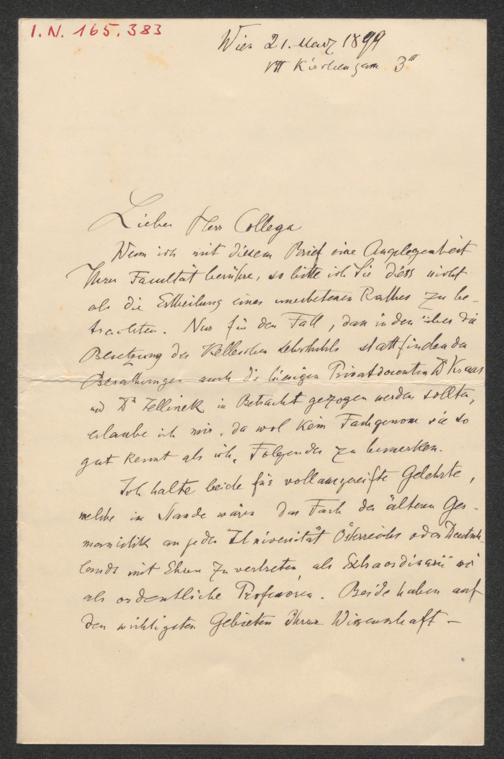 I.N. 165.383
Wien 21. März 1899
VIII Kirchengasse 3
Lieber Herr Collega
Wenn ich mit diesem Brief eine Angelegenheit
Ihrer Facultät berühre, so bitte ich Sie diess nicht
als die Ertheilung eines unerbetenen Rathes zu be-
trachten. Nur für den Fall, dass in den über die
Besetzung des Kelleschen Lehrstuhls stattfindenden
Berathungen auch die hiesigen Privatdocenten Dr Kraus
und Dr Jellinek in Betracht gezogen werden sollten,
erlaube ich mir, da wol kein Fachgenosse sie so
gut kennt als ich, Folgendes zu bemerken.
Ich halte beide für vollausgereifte Gelehrte,
welche im Stande wären das Fach der älteren Ger-
manistik an jeder Universität Österreichs oder Deutsch-
lands mit Ehren zu vertreten als Extraordinarii wie
als ordentliche Professoren. Beide haben auf
den wichtigsten Gebieten ihrer Wissenschaft –